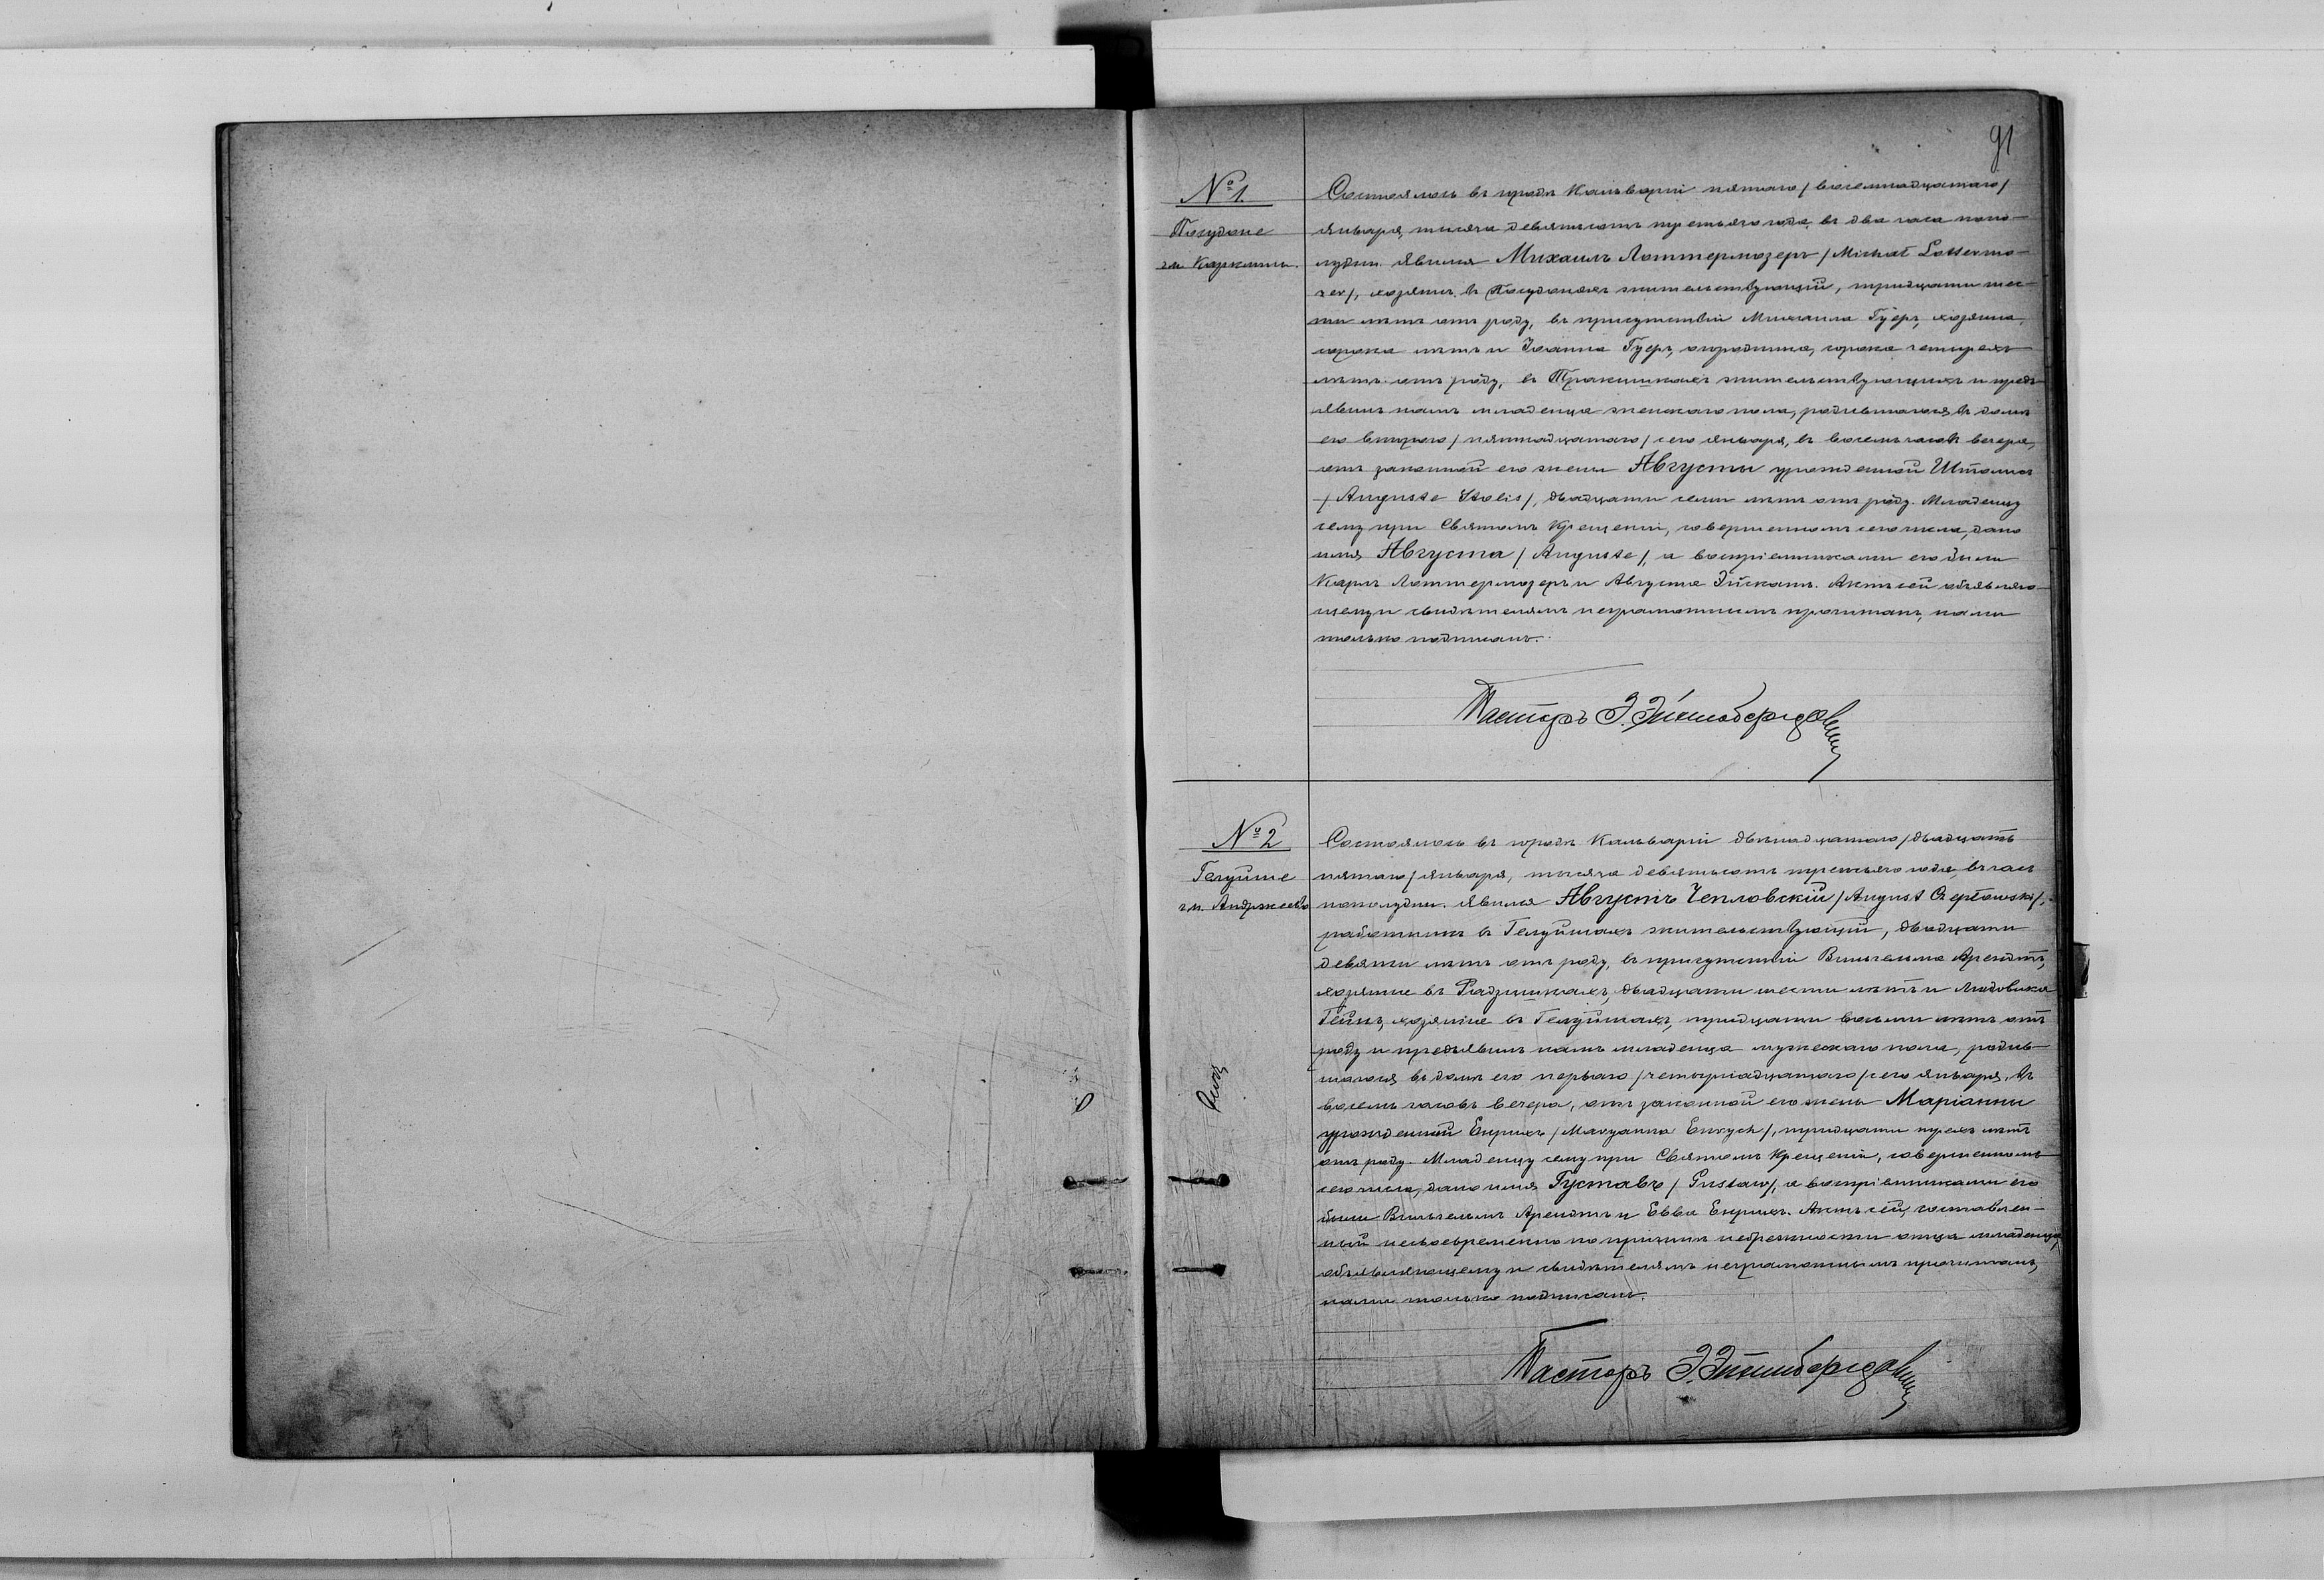 91
№ 1.
Посудоне
гм. Карклины.
Состоялось въ городѣ Кальваріи пятаго / восемнадцатаго /
Января, тысяча девятьсотъ третьяго года, въ два часа попо-
лудни. Явился Михаилъ Лоттермозеръ / Michał Lottermo-
zer /, хозяинъ, въ Посудоняхъ жительствующій, тридцати шес-
ти лѣтъ отъ роду, въ присутствіи Михаила Гуеръ, хозяина,
сорока лѣтъ и Іоанна Гуеръ, огородника, сорока четырехъ
лѣтъ отъ роду, въ Тракишкахъ жительствующихъ и предъ-
явилъ намъ младенца женскаго пола, родившагося въ домѣ
его второго / пятнадцатаго / сего Января, въ восемь часовъ вечера,
отъ законной его жены Августы урожденной Штолисъ
/ Auguste Stolis /, двадцати семи лѣтъ отъ роду. Младенцу
сему при Святомъ Крещеніи, совершенномъ сего числа, дано
имя Августа / Auguste /, а воспріемниками его были
Карлъ Лоттермозеръ и Августа Эйскатъ. Актъ сей объявляю-
щему и свидѣтелямъ неграмотнымъ прочитанъ, нами
только подписанъ.
Пасторъ Э.
№ 2
Гелуйше
гм. Анджеево
Состоялось въ городѣ Кальваріи двѣнадцатаго / двадцать
пятаго / Января, тысяча девятьсотъ третьяго года, въ часъ
пополудни. Явился Августъ Чепловскій / August Czepłowski /,
работникъ въ Гелуйшахъ жительствующій, двадцати
девяти лѣтъ отъ роду, въ присутствіи Вильгельма Арендтъ,
хозяина въ Радзишкахъ, двадцати шести лѣтъ и Людовика
Гейнъ, хозяина въ Гелуйшахъ, тридцати восьми лѣтъ отъ
роду и предъявилъ намъ младенца мужескаго пола, родив-
шагося въ домѣ его перваго / четырнадцатаго / сего Января, въ
восемь часовъ вечера, отъ законной его жены Маріанны
урожденной Енрихъ / Maryanna Enrych /, тридцати трехъ лѣтъ
отъ роду. Младенцу сему при Святомъ Крещеніи, совершенномъ
сего числа, дано имя Густавъ / Gustaw /, а воспріемниками его
были Вильгельмъ Арендтъ и Евва Енрихъ. Актъ сей, составлен-
ный несвоевременно по причинѣ небрежности отца младенца,
объявляющему и свидѣтелямъ неграмотнымъ прочитанъ,
нами только подписанъ.
Пасторъ Э.